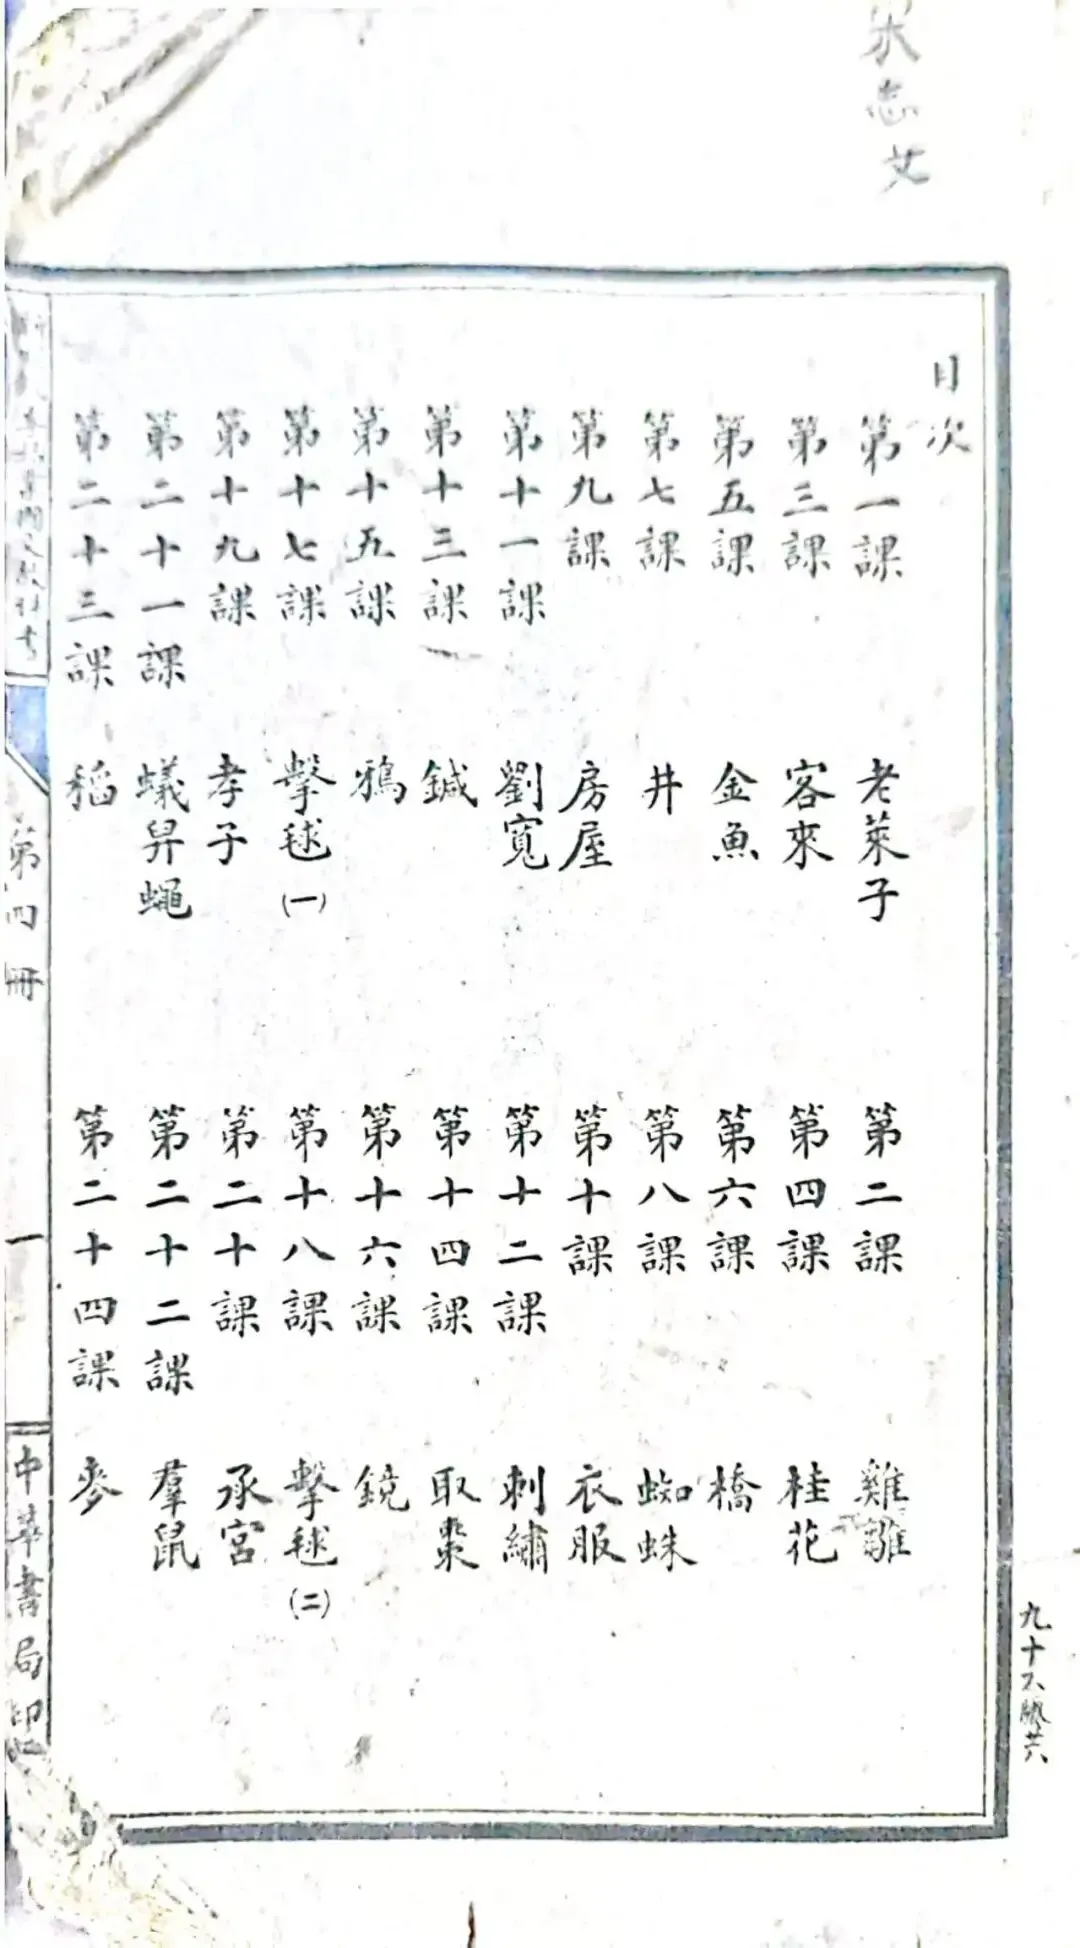 目次
第一課 老萊子
第二課 雞雛
第三課 客來
第四課 桂花
第五課 金魚
第六課 橋
第七課 井
第八課 蜘蛛
第九課 房屋
第十課 衣服
第十一課 劉寬
第十二課 刺繡
第十三課 鍼
第十四課 取棗
第十五課 鴉
第十六課 鏡
第十七課 擊毬(一)
第十八課 擊毬(二)
第十九課 孝子
第二十課 承宮
第二十一課 蟻舁蠅
第二十二課 羣鼠
第二十三課 稻
第二十四課 麥
第四冊
一
中華書局印
志文